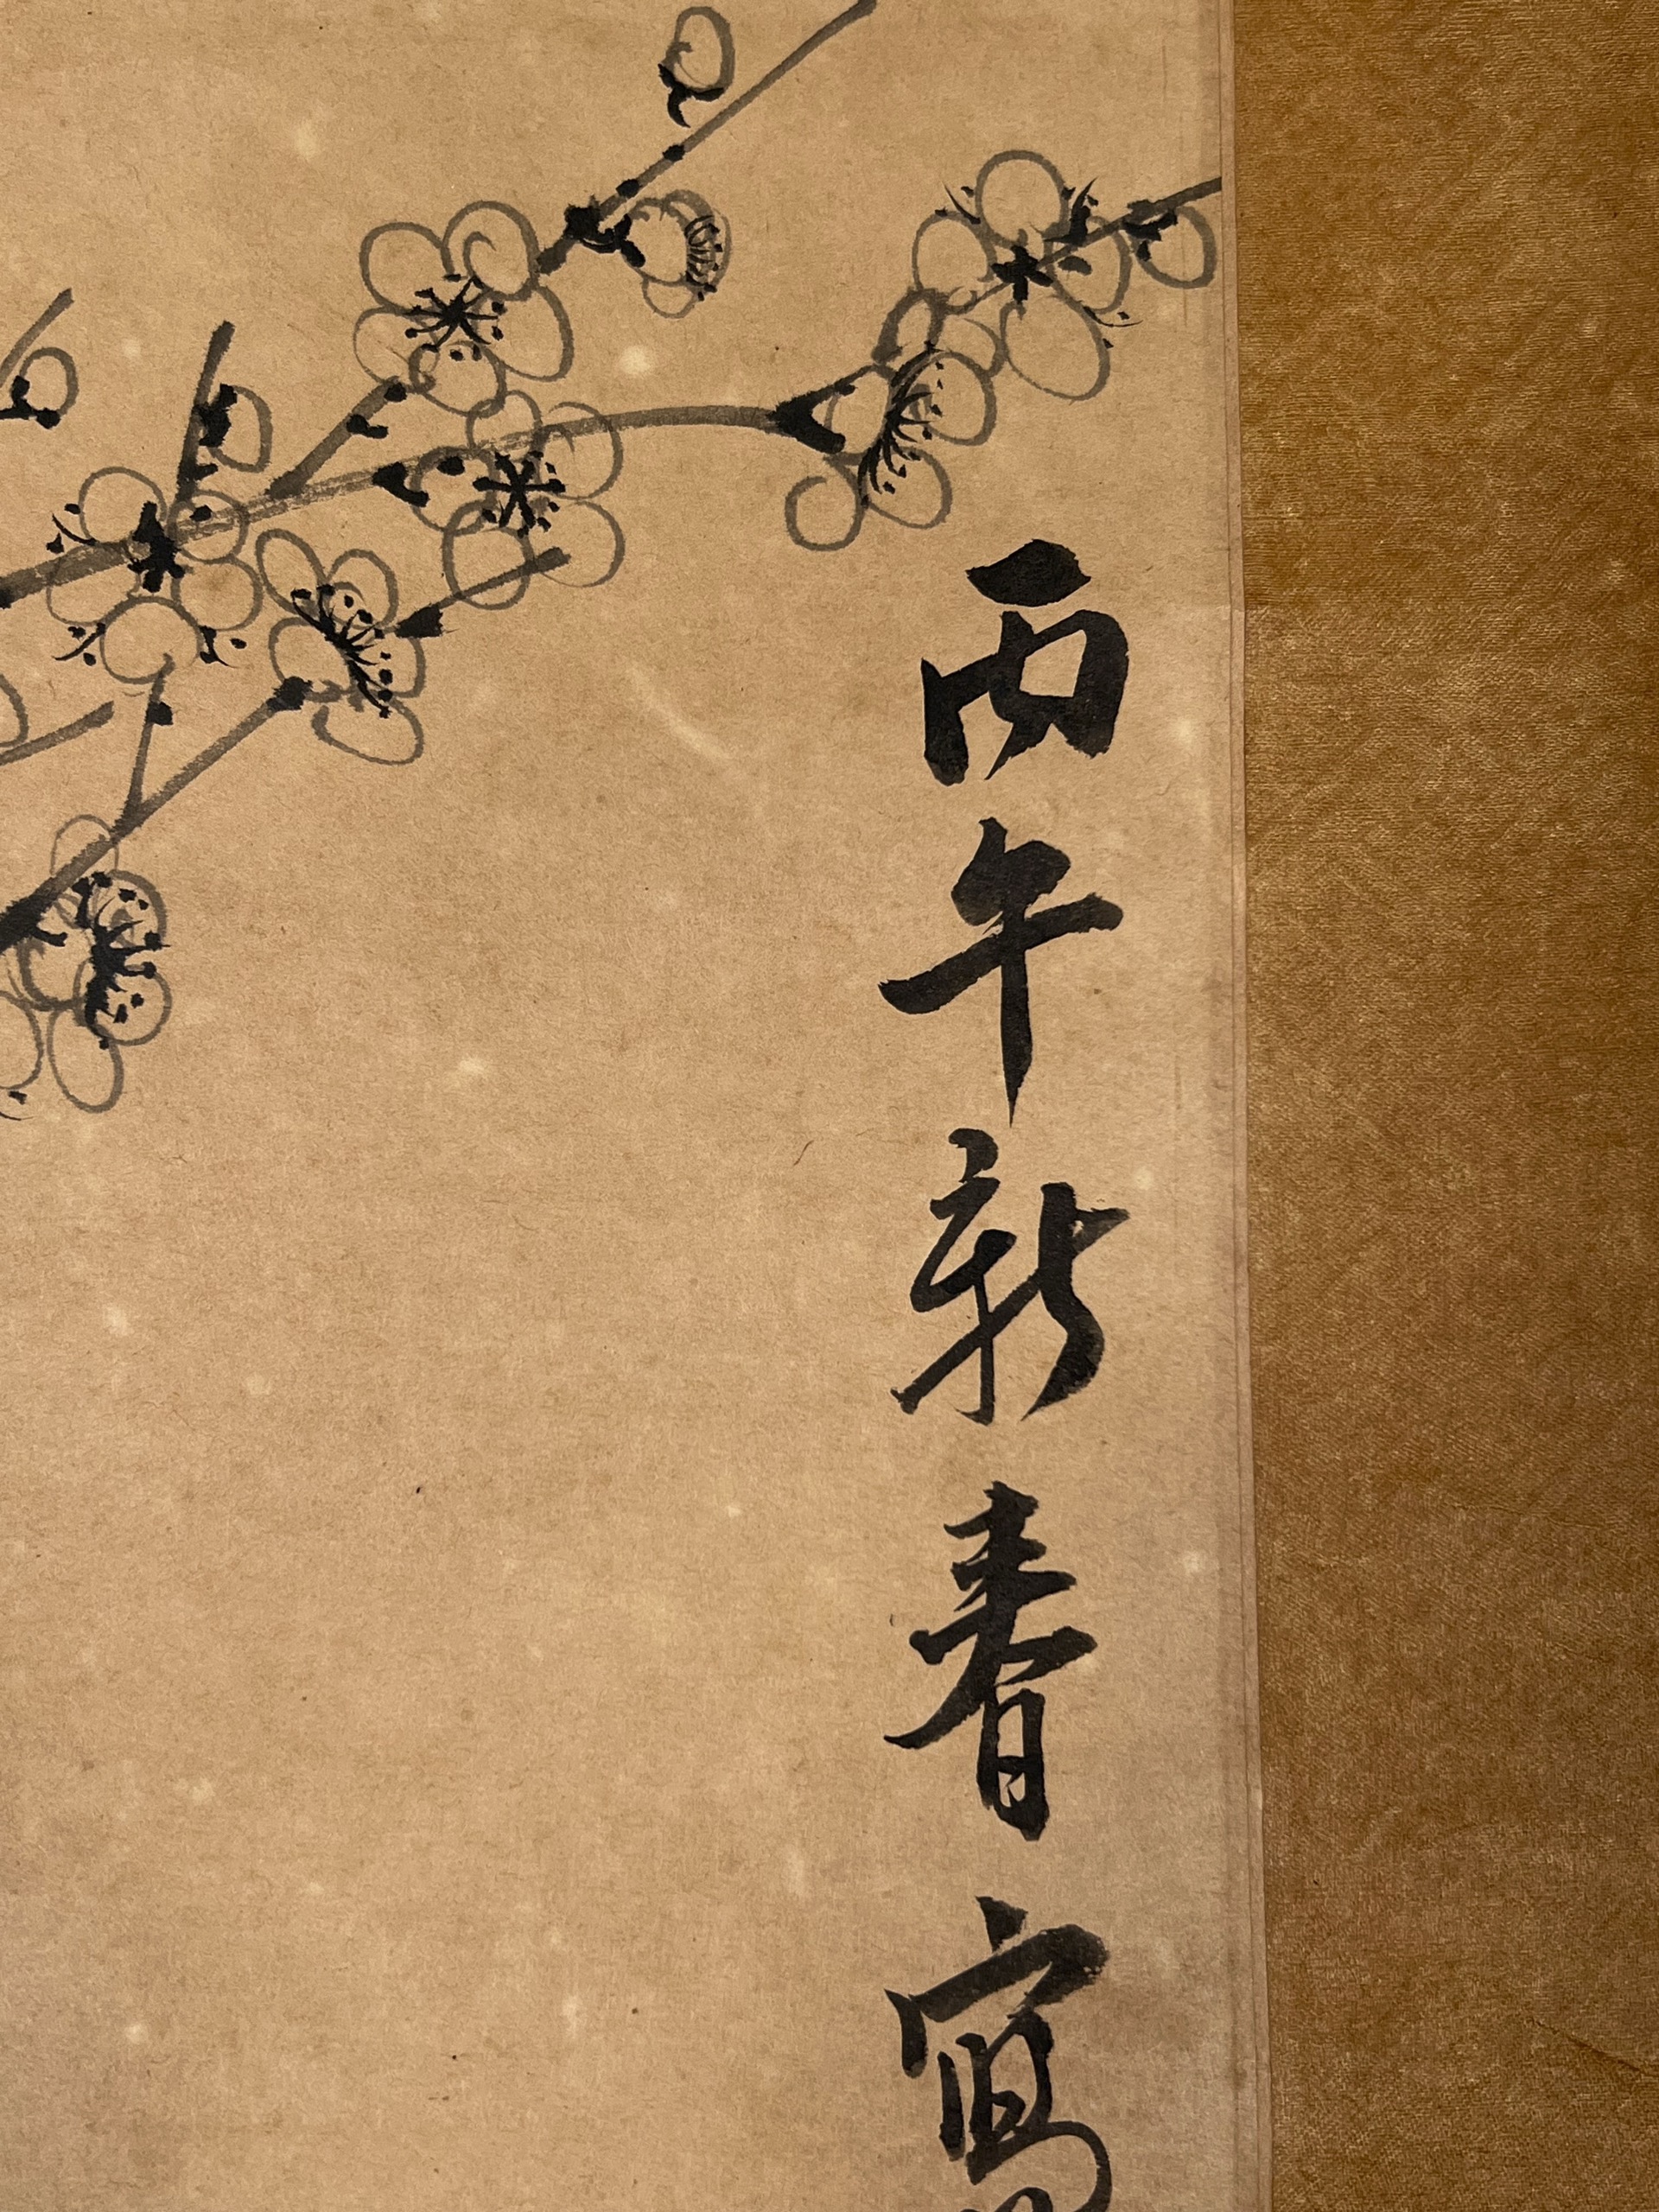 丙午新春寫